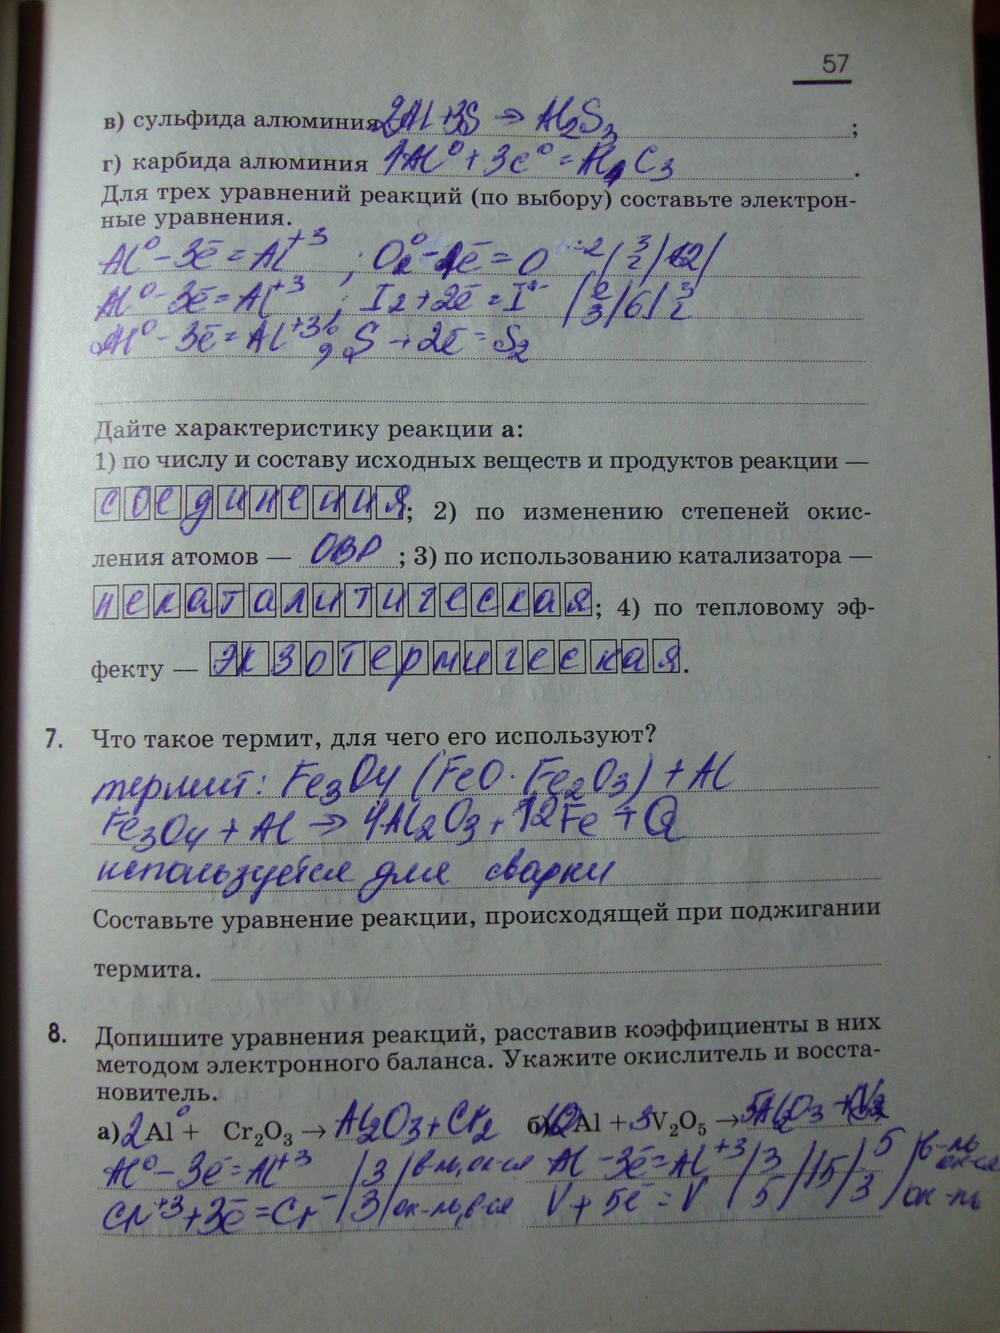 57
в) сульфида алюминия 2Al+3S → Al₂S₃ ;
г) карбида алюминия 4Al⁰ + 3C⁰ = Al₄C₃ .
Для трех уравнений реакций (по выбору) составьте электрон-
ные уравнения.
Al⁰ - 3ē = Al⁺³ ; O₂⁰ - 4ē = O⁻²
Al⁰ - 3ē = Al⁺³ ; I₂ + 2ē = I⁻
Al⁰ - 3ē = Al⁺³, S + 2ē = S₂
Дайте характеристику реакции а:
1) по числу и составу исходных веществ и продуктов реакции —
соединения; 2) по изменению степеней окис-
ления атомов — ОВР ; 3) по использованию катализатора —
некаталитическая; 4) по тепловому эф-
фекту — экзотермическая.
7. Что такое термит, для чего его используют?
термит: Fe₃O₄ (FeO · Fe₂O₃) + Al
Fe₃O₄ + Al → 4Al₂O₃ + 12Fe + Q
используется для сварки
Составьте уравнение реакции, происходящей при поджигании
термита.
8. Допишите уравнения реакций, расставив коэффициенты в них
методом электронного баланса. Укажите окислитель и восста-
новитель.
а) 2Al + Cr₂O₃ → Al₂O₃ + Cr₂ б) 10Al + 3V₂O₅ → 5Al₂O₃ +
Al⁰ - 3ē = Al⁺³ | 3 | в-ль, ок-ся Al - 3ē = Al⁺³ | 3 | 15 | 5 | в-ль ок-ся
Cr⁺³ + 3ē = Cr | 3 | ок-ль, в-ся V + 5ē = V | 5 | 3 | ок-ль